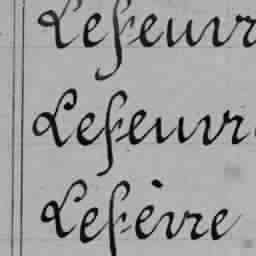 Lefeuvr
Lefeuvr
Lefèvre